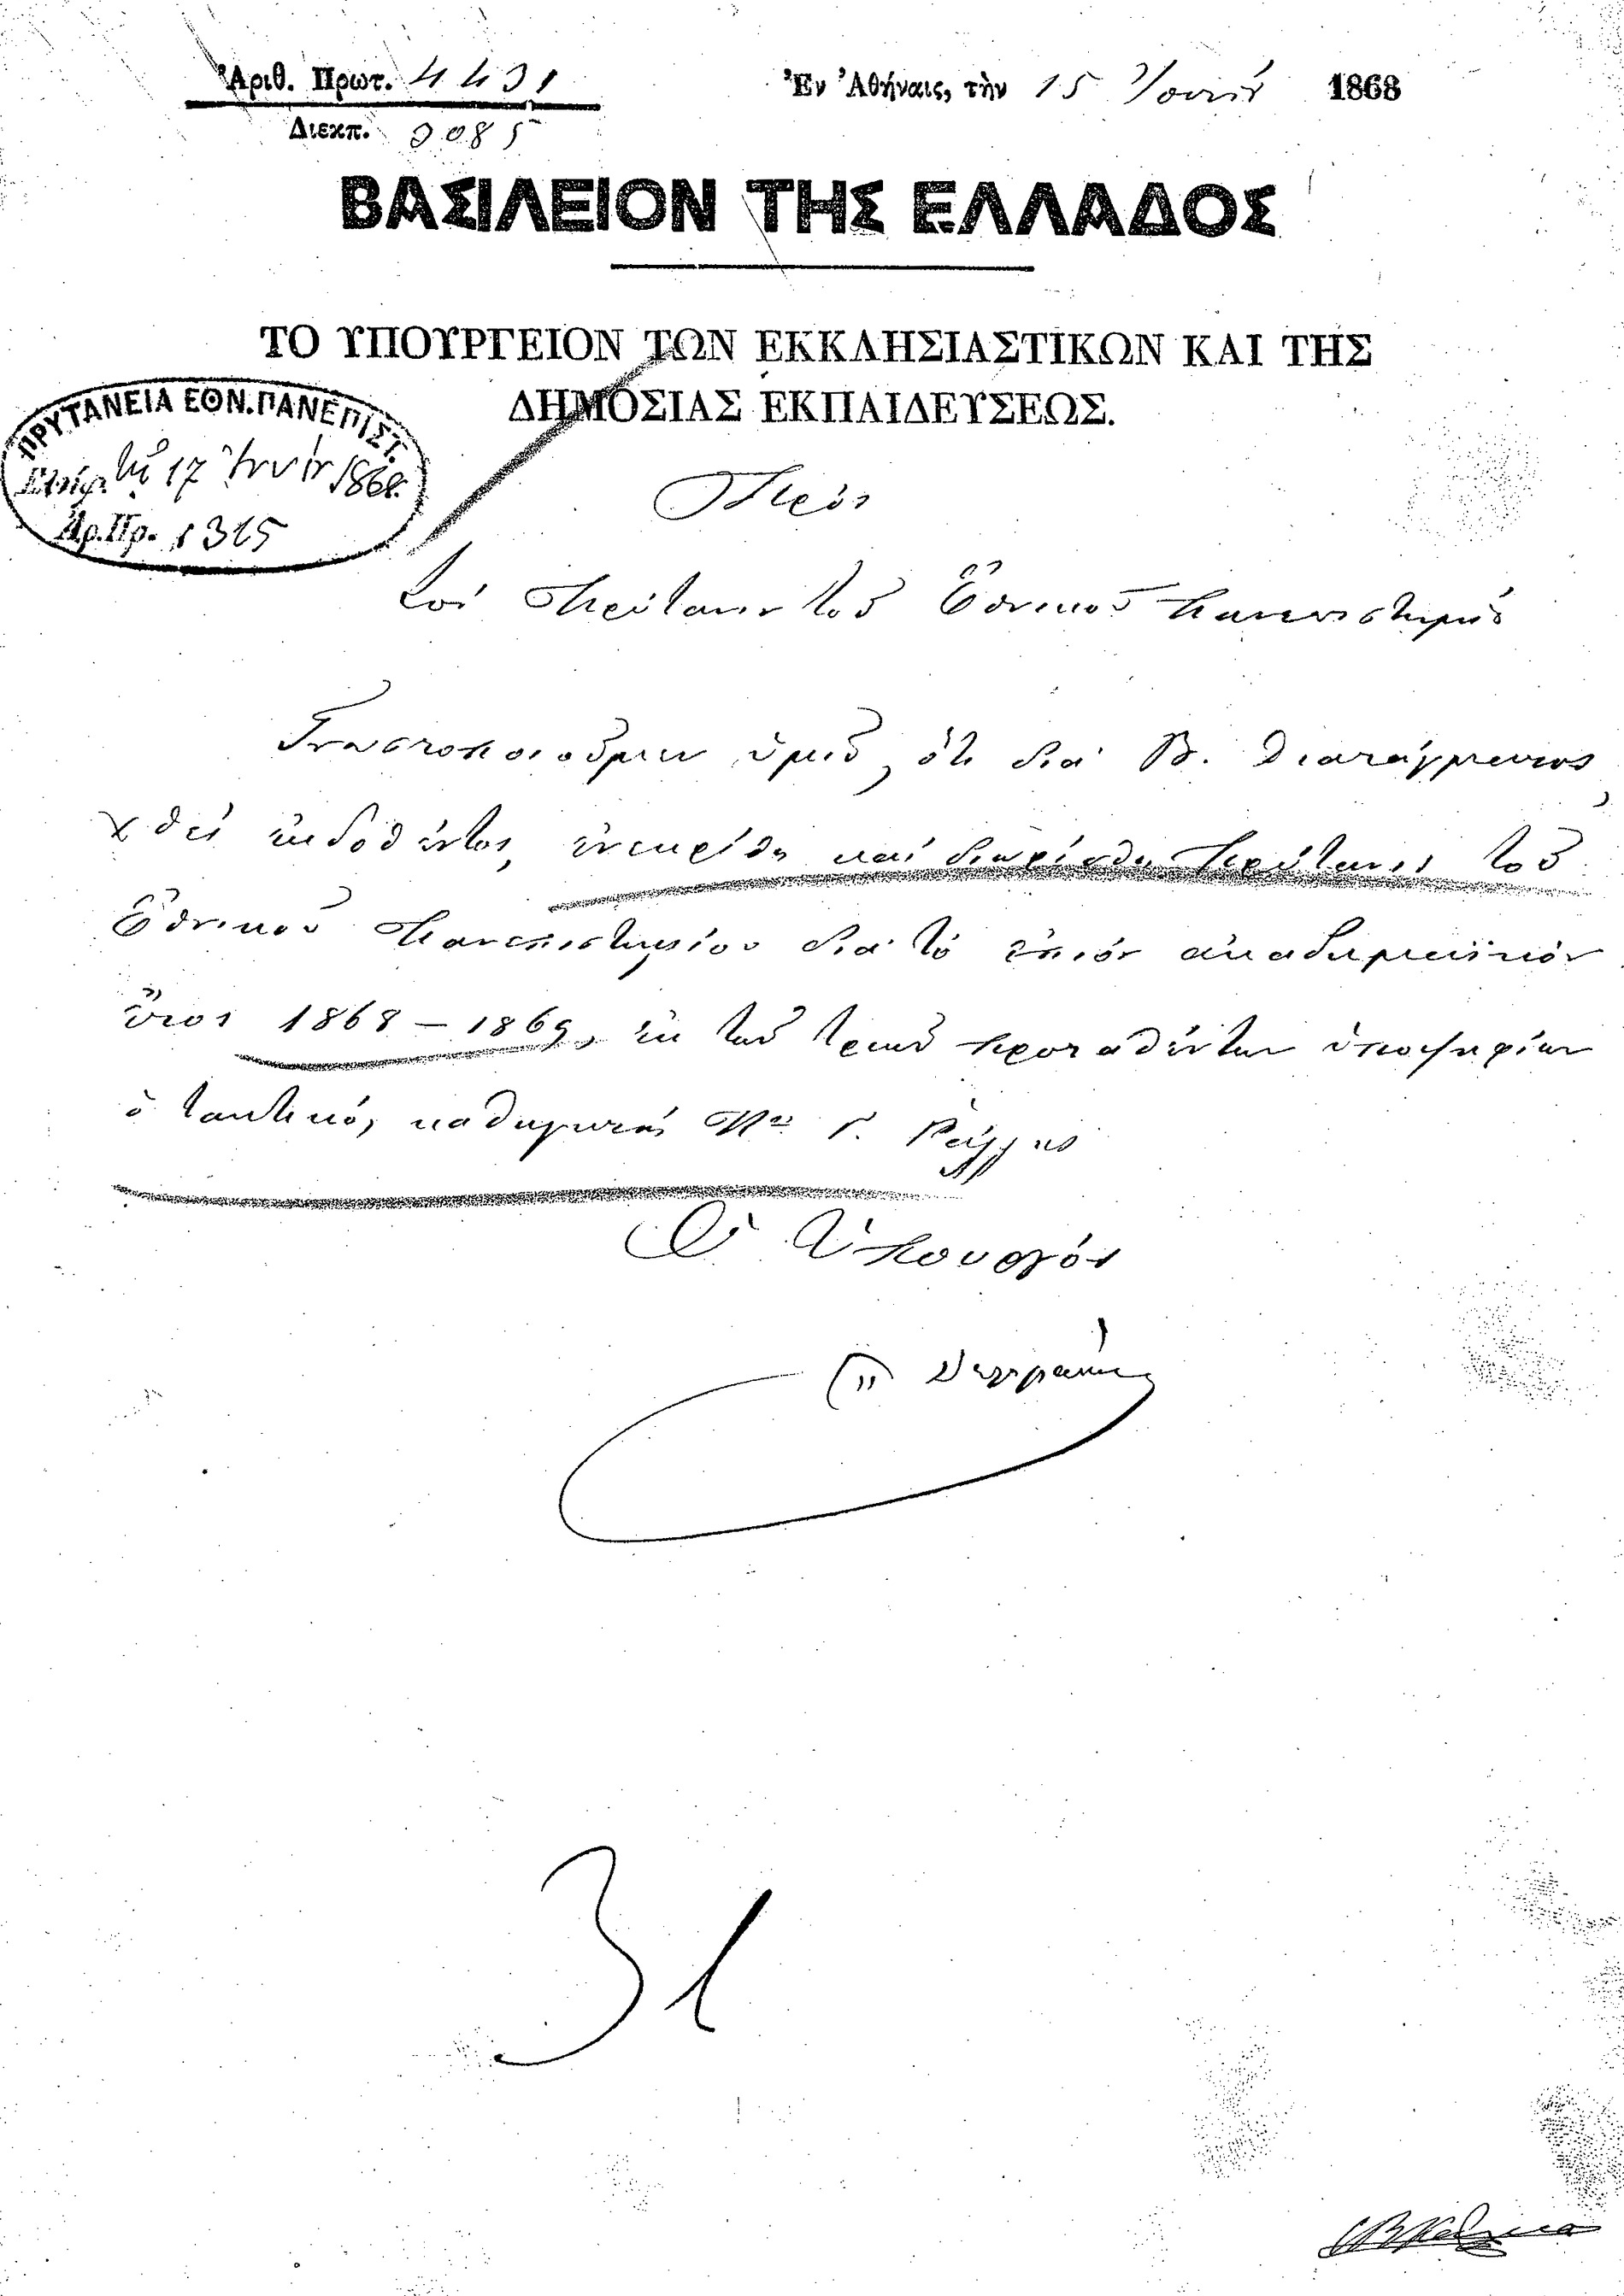 Ἀριθ. Πρωτ. 4431
Διεκπ. 3085
Ἐν Ἀθήναις, τὴν 15 Ἰουνίου 1868
ΒΑΣΙΛΕΙΟΝ ΤΗΣ ΕΛΛΑΔΟΣ
ΤΟ ΥΠΟΥΡΓΕΙΟΝ ΤΩΝ ΕΚΚΛΗΣΙΑΣΤΙΚΩΝ ΚΑΙ ΤΗΣ
ΔΗΜΟΣΙΑΣ ΕΚΠΑΙΔΕΥΣΕΩΣ.
ΠΡΥΤΑΝΕΙΑ ΕΘΝ. ΠΑΝΕΠΙΣΤ.
τῇ 17 Ἰουνίου 1868
Ἀρ. Πρ. 1315
Πρὸς
τὸν Πρύτανιν τοῦ Ἐθνικοῦ Πανεπιστημίου
Γνωστοποιοῦμεν ὑμῖν, ὅτι διὰ Β. Διατάγματος,
χθὲς ἐκδοθέντος, ἐνεκρίθη καὶ διωρίσθη Πρύτανις τοῦ
Ἐθνικοῦ Πανεπιστημίου διὰ τὸ ἐπιὸν ἀκαδημαϊκὸν
ἔτος 1868 – 1869, ἐκ τῶν τριῶν προταθέντων ὑποψηφίων
ὁ τακτικὸς καθηγητὴς Κος Γ. Ράλλης
Ὁ Ὑπουργὸς
31